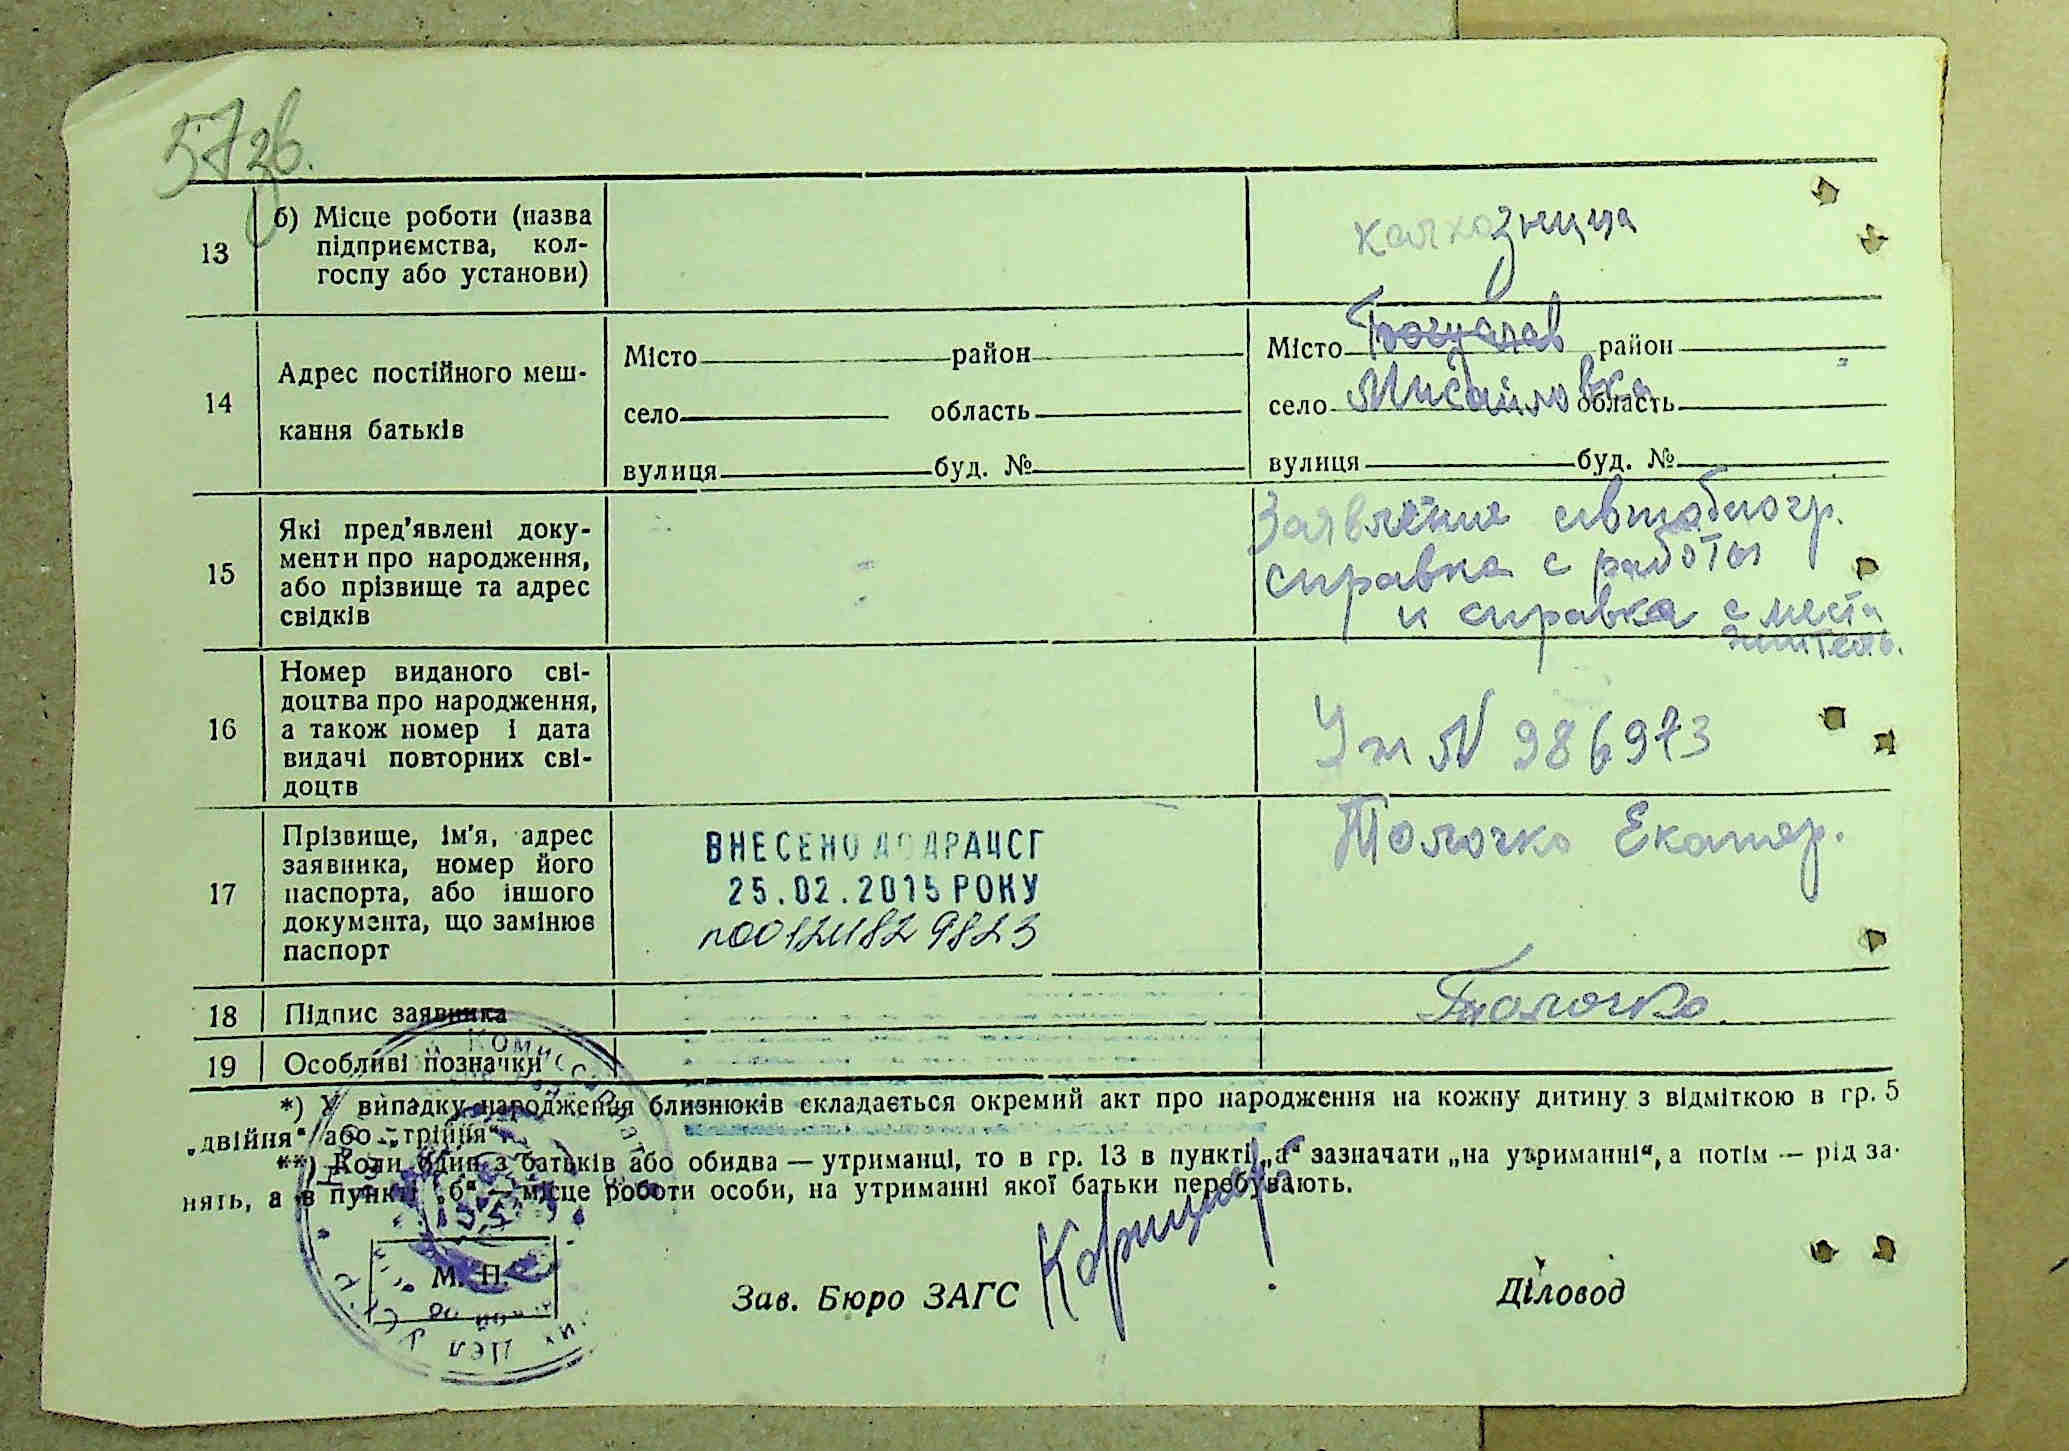 57зв.
13
б) Місце роботи (назва
підприємства, кол-
госпу або установи)
колхозница
14
Адрес постійного меш-
кання батьків
Місто район
село область
вулиця буд. №
Місто Богуслав район
село Михайловка область
вулиця буд. №
15
Які пред'явлені доку-
менти про народження,
або прізвище та адрес
свідків
Заявление автобиогр.
справка с работы
и справка с места
житель.
16
Номер виданого сві-
доцтва про народження,
а також номер і дата
видачі повторних сві-
доцтв
№ 986973
17
Прізвище, ім'я, адрес
заявника, номер його
паспорта, або іншого
документа, що замінює
паспорт
ВНЕСЕНО ДО ДРАЦСГ
25.02.2015 РОКУ
Толочко Екатер.
18
Підпис заявника
Толочко
19
Особливі позначки
*) У випадку народження близнюків складається окремий акт про народження на кожну дитину з відміткою в гр. 5
„двійня“ або „трійня“.
**) Коли один з батьків або обидва — утриманці, то в гр. 13 в пункті „а“ зазначати „на утриманні“, а потім — рід за-
нять, а в пункті „б“ — місце роботи особи, на утриманні якої батьки перебувають.
М. П.
Зав. Бюро ЗАГС
Діловод